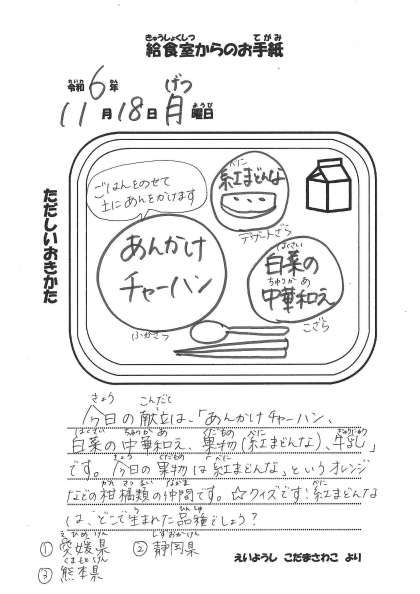 きゅうしょくしつ てがみ
給食室からのお手紙
れいわ ねん げつ
令和6年
がつ にち ようび
11月18日月曜日
ただしいおきかた
ごはんをのせて
上にあんをかけます
べに
紅まどんな
デザートざら
あんかけ
チャーハン
ふかざら
はくさい
白菜の
ちゅうか あ
中華和え
こざら
きょう こんだて
今日の献立は、「あんかけチャーハン、
はくさい ちゅうか あ くだもの べに ぎゅうにゅう
白菜の中華和え、果物(紅まどんな)、牛乳」
きょう くだもの べに
です。今日の果物は「紅まどんな」というオレンジ
かんきつ るい なかま べに
などの柑橘類の仲間です。☆クイズです!紅まどんな
う ひんしゅ
は、どこで生まれた品種でしょう?
えひめけん しずおかけん
①愛媛県 ②静岡県
くまもとけん
③熊本県
えいようし こだまさわこ より